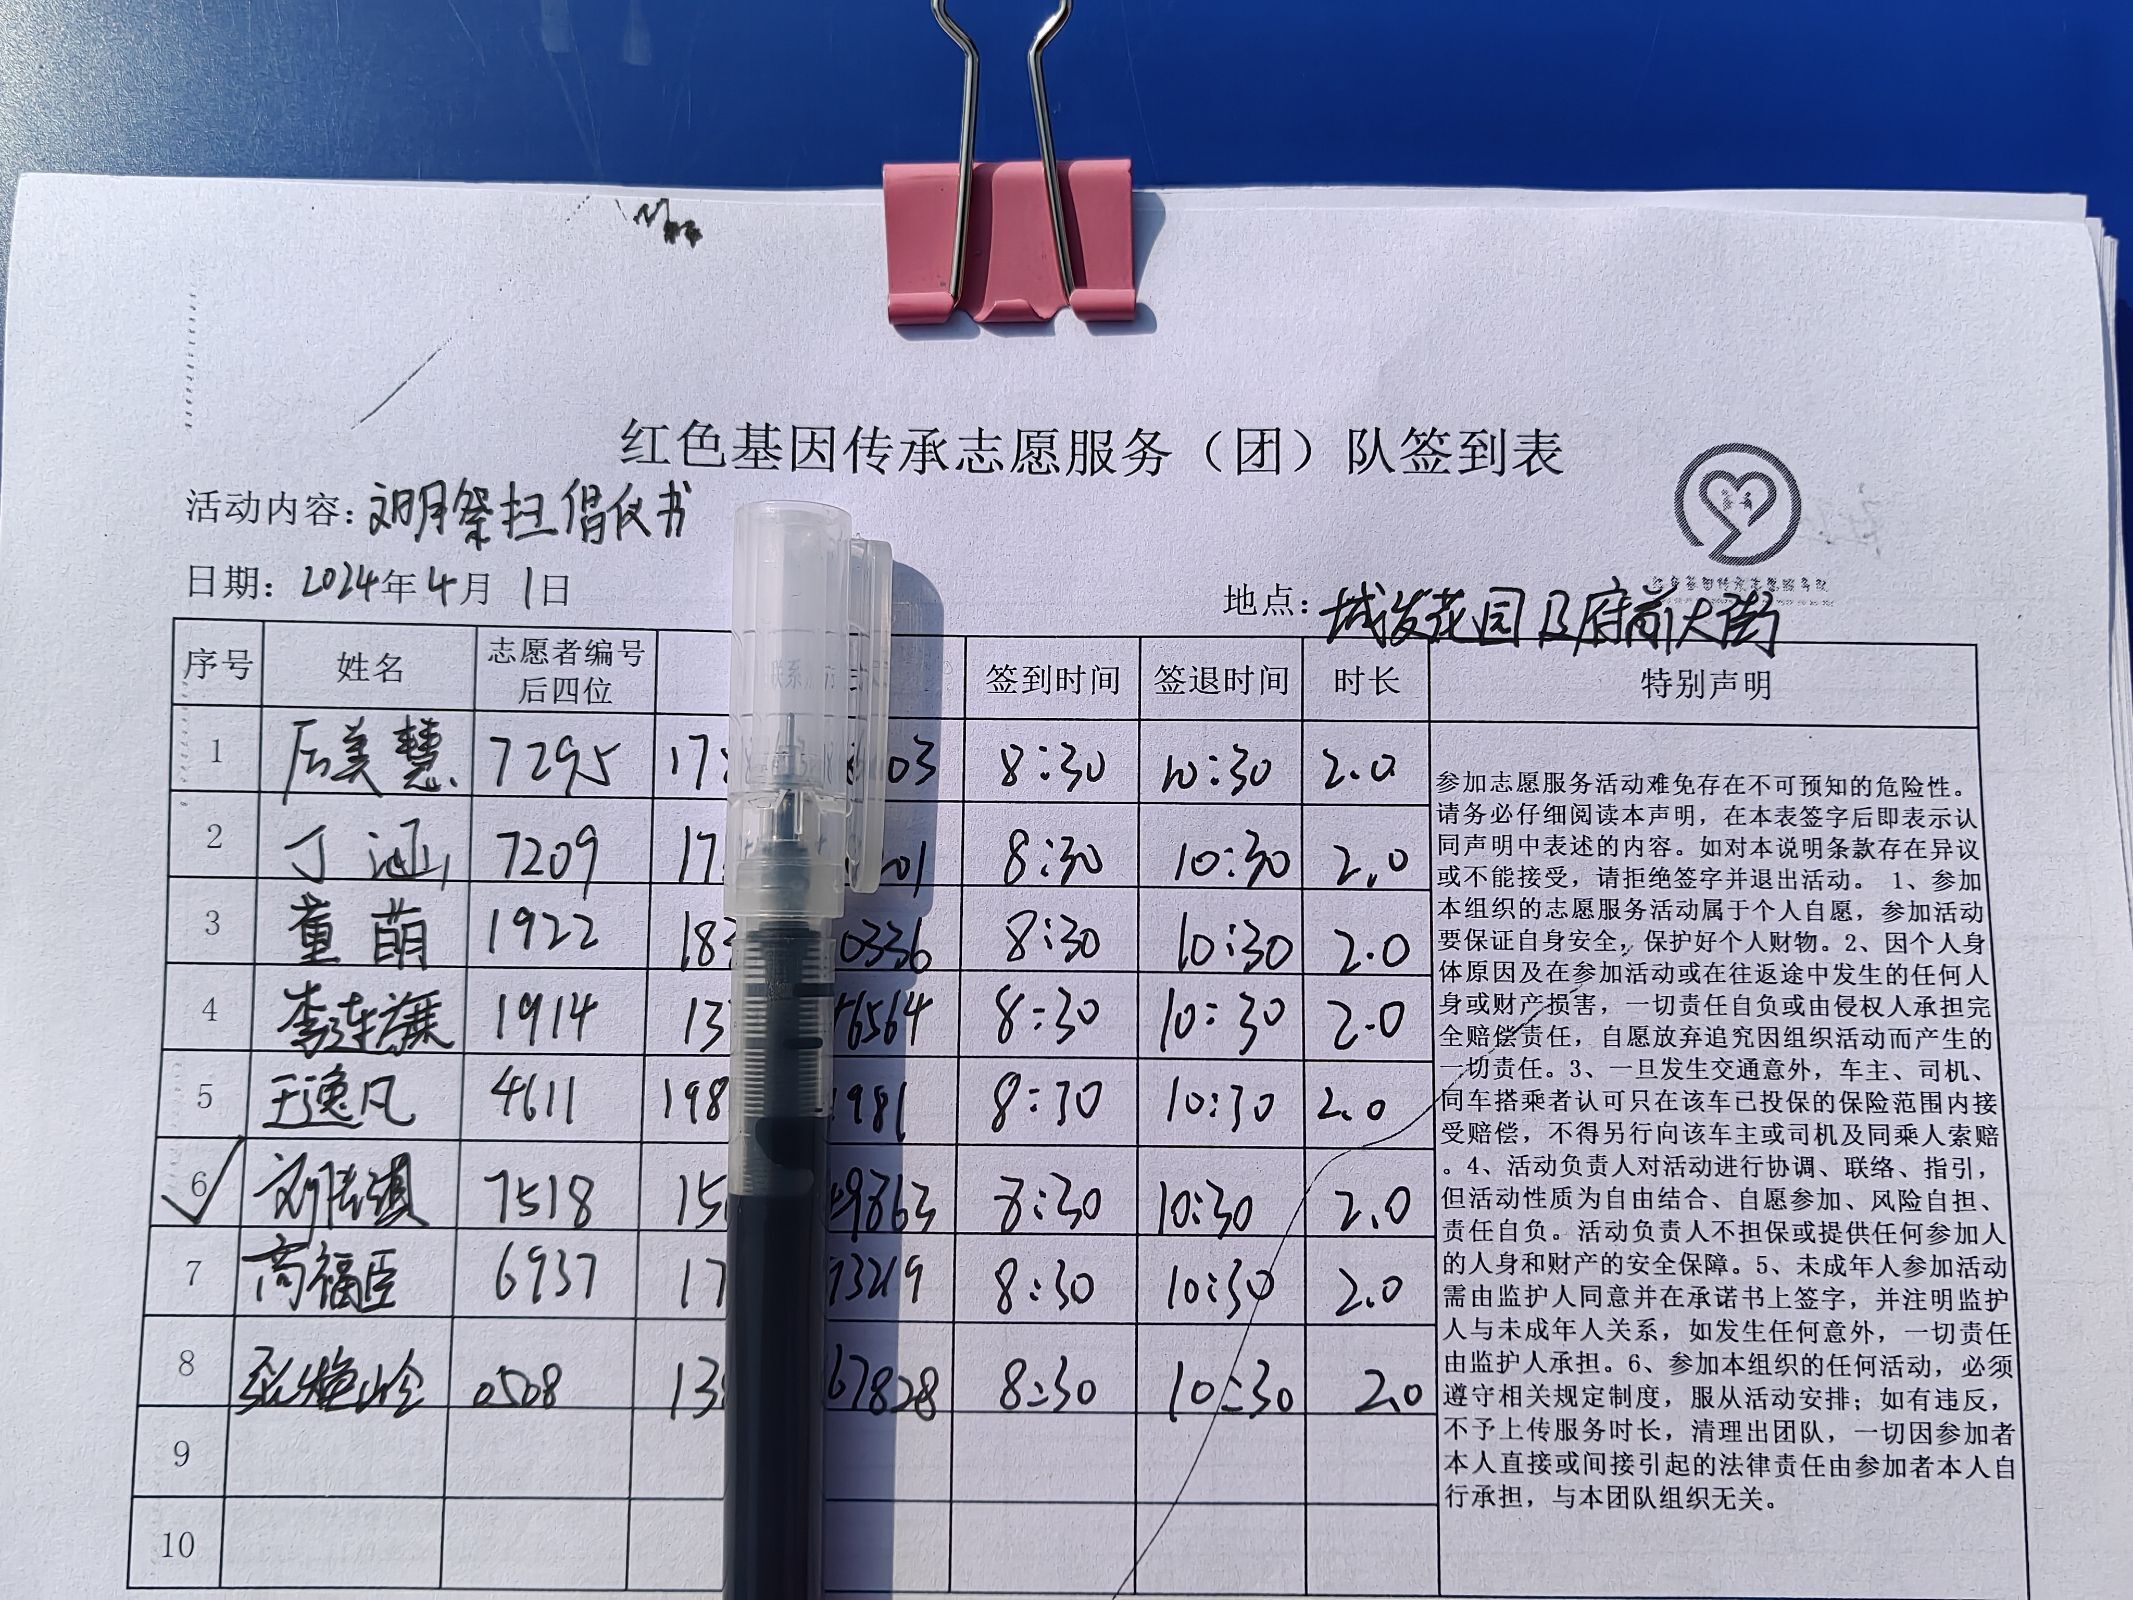 红色基因传承志愿服务（团）队签到表
活动内容：文明祭扫倡仪书
日期：2024年4月1日
地点：城发花园及府前大街
序号 姓名 志愿者编号后四位 联系 签到时间 签退时间 时长 特别声明
1 后美慧 7295 17 03 8:30 10:30 2.0
2 丁涵 7209 17 01 8:30 10:30 2.0
3 童萌 1922 183 0336 8:30 10:30 2.0
4 李连濂 1914 13 6564 8:30 10:30 2.0
5 王逸凡 4611 198 981 8:30 10:30 2.0
6 刘 7518 15 9863 8:30 10:30 2.0
7 高福臣 6937 17 73219 8:30 10:30 2.0
8 0508 13 67828 8:30 10:30 2.0
9
10
参加志愿服务活动难免存在不可预知的危险性。
请务必仔细阅读本声明，在本表签字后即表示认
同声明中表述的内容。如对本说明条款存在异议
或不能接受，请拒绝签字并退出活动。 1、参加
本组织的志愿服务活动属于个人自愿，参加活动
要保证自身安全，保护好个人财物。2、因个人身
体原因及在参加活动或在往返途中发生的任何人
身或财产损害，一切责任自负或由侵权人承担完
全赔偿责任，自愿放弃追究因组织活动而产生的
一切责任。3、一旦发生交通意外，车主、司机、
同车搭乘者认可只在该车已投保的保险范围内接
受赔偿，不得另行向该车主或司机及同乘人索赔
。4、活动负责人对活动进行协调、联络、指引，
但活动性质为自由结合、自愿参加、风险自担、
责任自负。活动负责人不担保或提供任何参加人
的人身和财产的安全保障。5、未成年人参加活动
需由监护人同意并在承诺书上签字，并注明监护
人与未成年人关系，如发生任何意外，一切责任
由监护人承担。6、参加本组织的任何活动，必须
遵守相关规定制度，服从活动安排；如有违反，
不予上传服务时长，清理出团队，一切因参加者
本人直接或间接引起的法律责任由参加者本人自
行承担，与本团队组织无关。